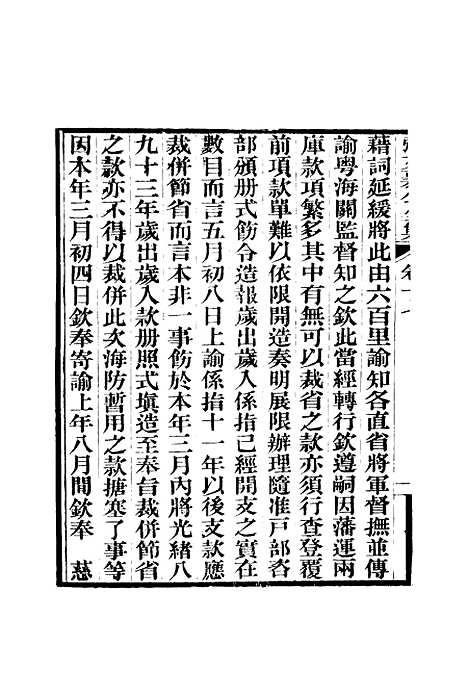 藉詞延緩將此由六百里諭知各直省將軍督撫並傳
諭粵海關監督知之欽此當經轉行欽遵嗣因藩運兩
庫款項繁多其中有無可以裁省之款亦須行查登覆
前項款單難以依限開造奏明展限辦理隨准戶部咨
部頒册式飭令造報歲出歲入係指已經開支之實在
數目而言五月初八日上諭係指十一年以後支款應
裁併節省而言本非一事飭於本年三月內將光緒八
九十三年歲出歲入款册照式填造至奉旨裁併節省
之款亦不得以裁併此次海防暫用之款搪塞了事等
因本年三月初四日欽奉寄諭上年八月間欽奉　慈